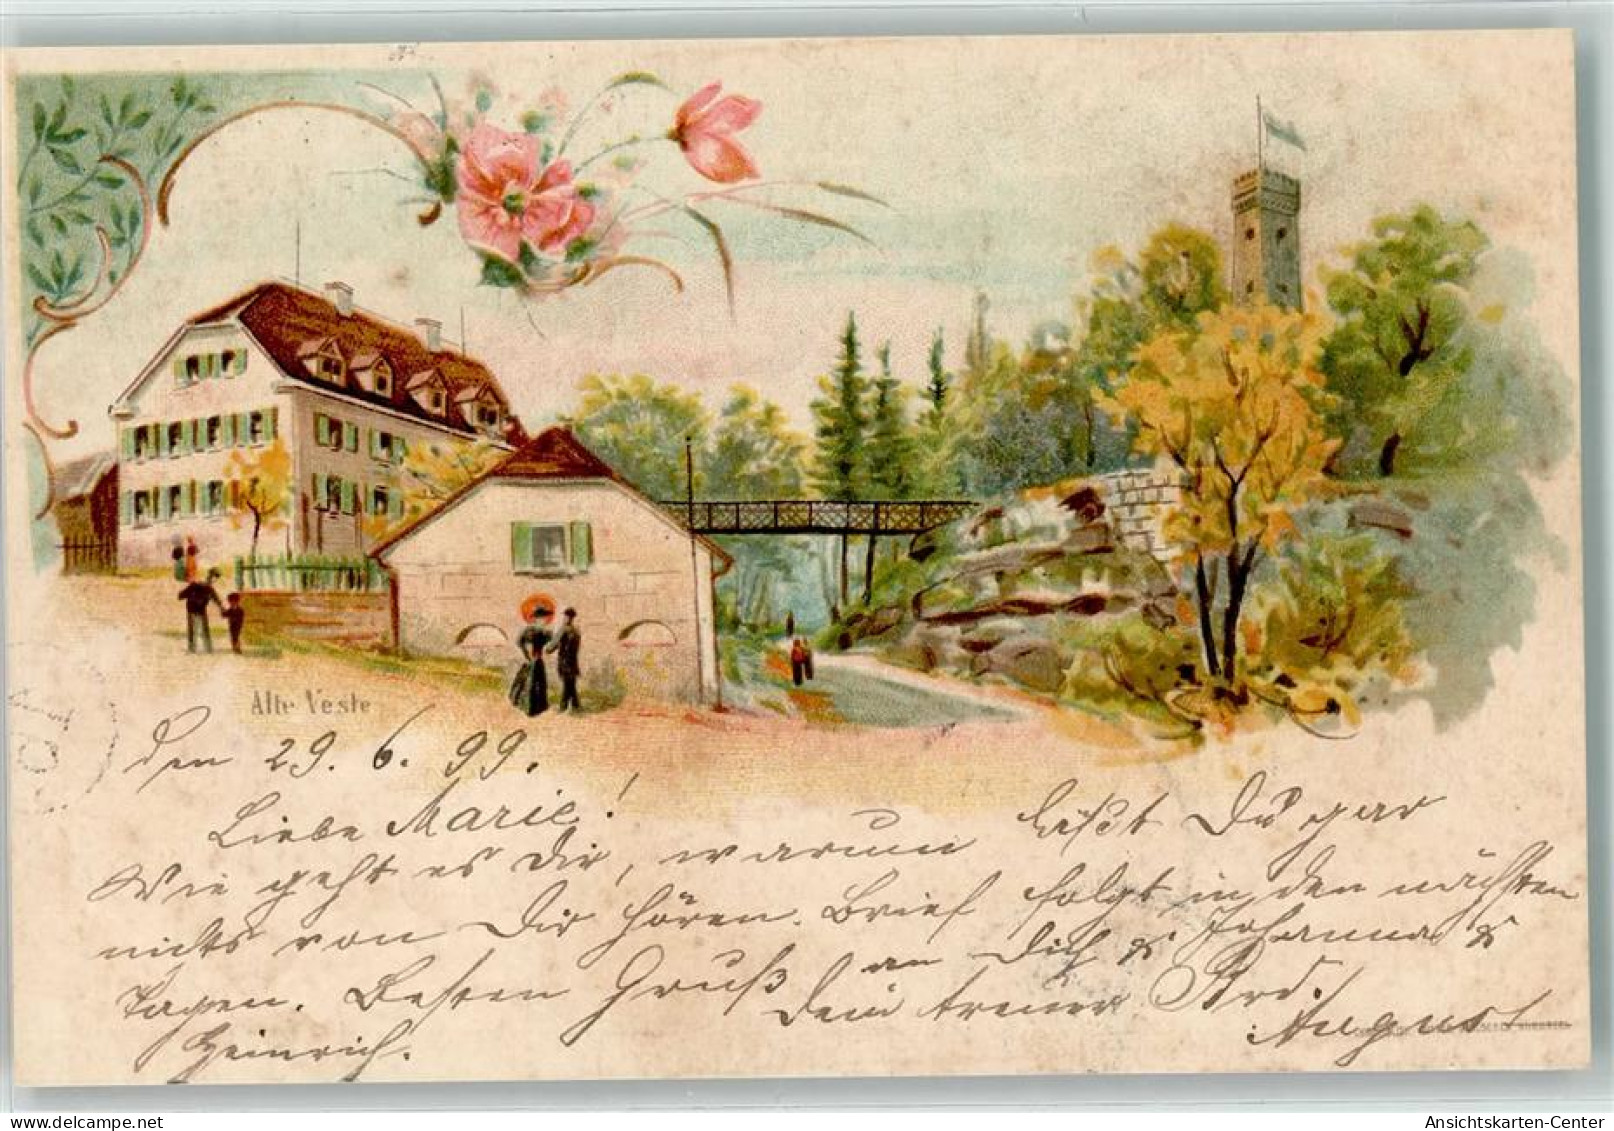 Alte Veste
den 29. 6. 99.
Liebe Marie!
Wie geht es Dir, warum läßt Du gar
nichts von Dir hören. Brief folgt in den nächsten
Tagen. Besten Gruß an Dich & Johanna &
Heinrich. Dein treuer
August
Ansichtskarten-Center